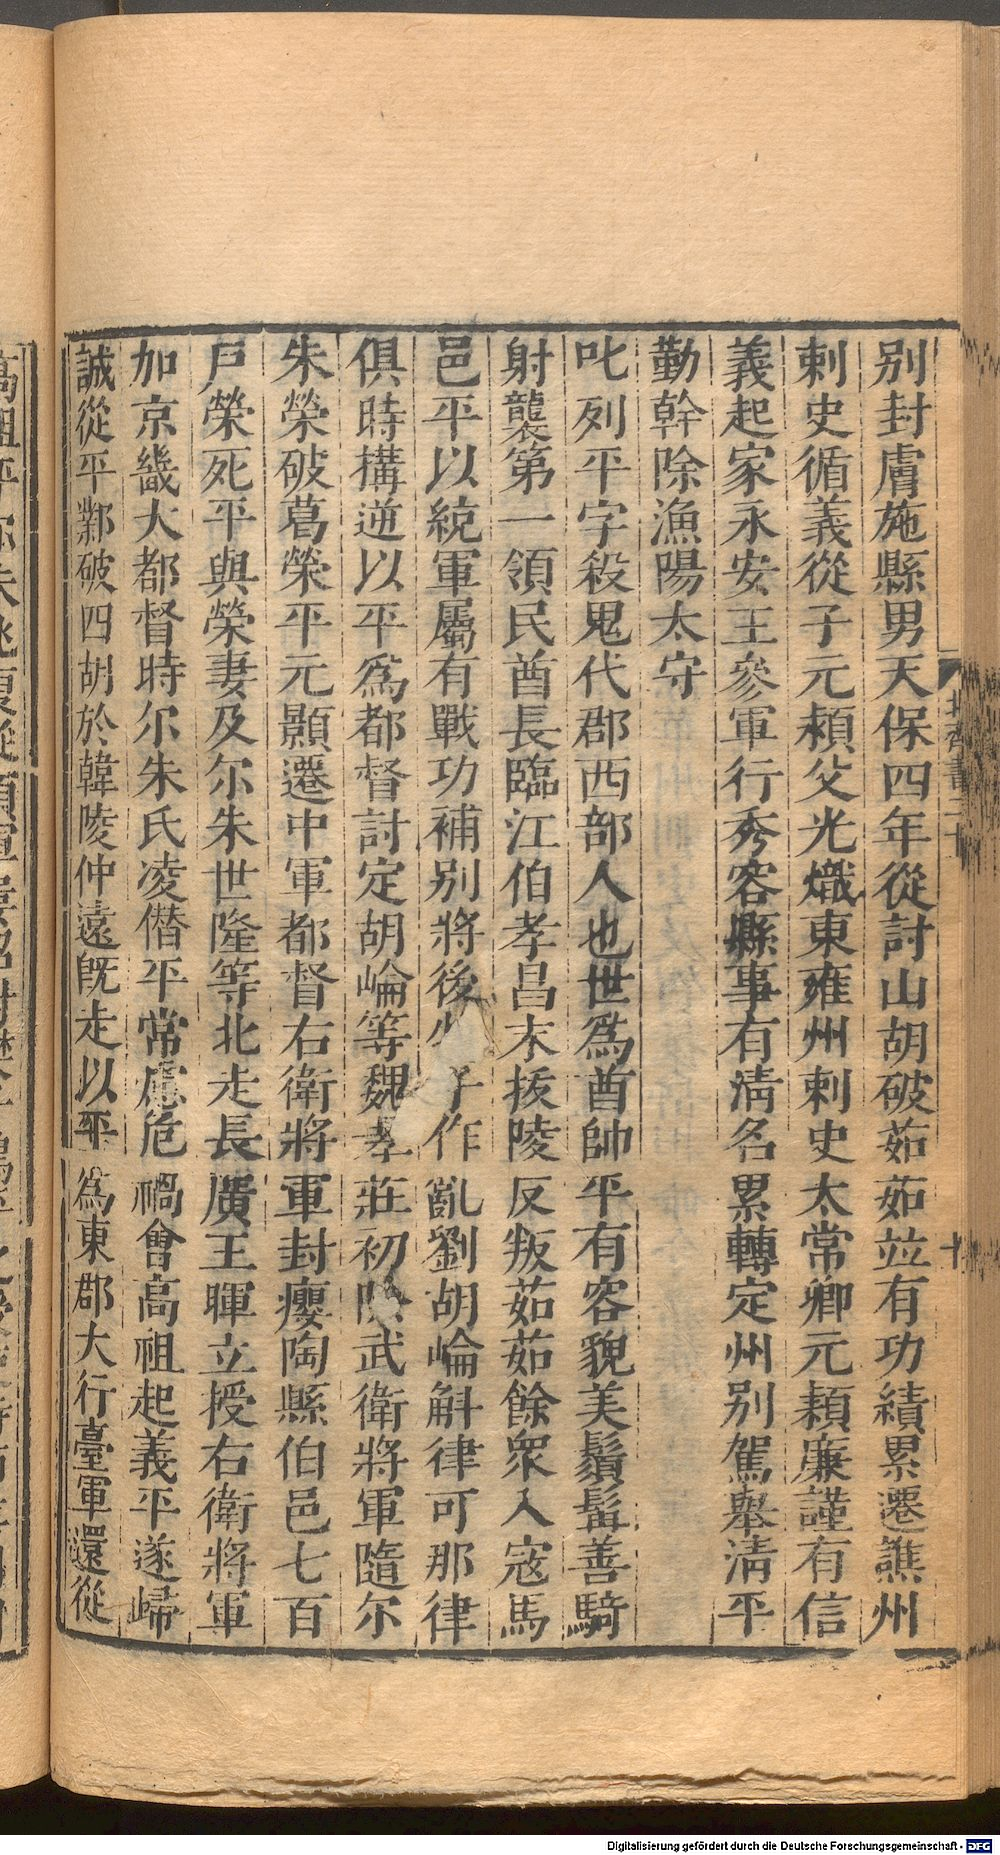 别封膚施縣男天保四年從討山胡破茹茹並有功績累遷譙州
刺史循義從子元頴父光熾東雍州刺史太常卿元頴廉謹有信
義起家永安王參軍行秀容縣事有清名累轉定州别駕舉清平
勤幹除漁陽太守
叱列平字殺鬼代郡西部人也世爲酋帥平有容貌美鬚髯善騎
射襲第一領民酋長臨江伯孝昌末拔陵反叛茹茹餘衆入寇馬
邑平以統軍屬有戰功補别將後子作亂劉胡崘斛律可那律
俱時搆逆以平爲都督討定胡崘等魏孝莊初除武衛將軍隨尔
朱榮破葛榮平元顥遷中軍都督右衛將軍封癭陶縣伯邑七百
戸榮死平與榮妻及尔朱世隆等北走長廣王暉立授右衛將軍
加京畿大都督時尔朱氏凌僣平常慮危禍會高祖起義平遂歸
誠從平鄴破四胡於韓陵仲遠旣走以平爲東郡大行臺軍還從
北齊書二十
十
Digitalisierung gefördert durch die Deutsche Forschungsgemeinschaft - DFG